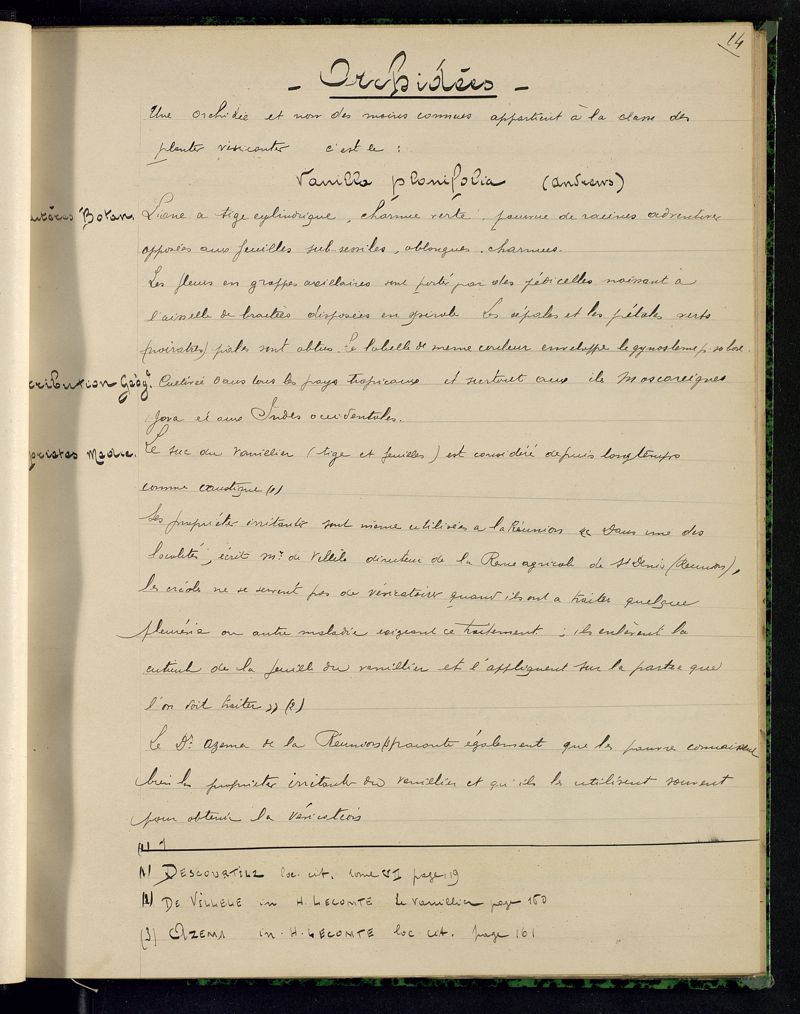 14
- Orchidées -
Une orchidée et non des moins connues appartient à la classe des
plantes vésicantes c'est le :
Vanilla planifolia (Andrews)
actères Botan. Liane a tige cylindrique, charnue verte, pourvue de racines adventives
opposées aux feuilles sub sessiles, oblongues, charnues.
Les fleurs en grappes axillaires sont porté par des pédicelles naissant à
l'aisselle de bractées disposées en spirale Les sépales et les pétales verts
(noiratres) pales sont obtus. Le labelle de meme couleur enveloppe le gynosteme p sa base.
tribution Géogr. Cultivée dans tous les pays tropicaux et surtout aux ile Mascareignes
Java et aux Indes occidentales.
opriétés Medic. Le suc du vanillier (tige et feuilles) est considéré depuis longtemps
comme caustique (1)
Les propriétés irritantes sont meme utilisées a la Réunion « Dans une des
localités, écrit Mr. de Villèle directeur de la Revue agricole de St Denis (Réunion),
les créoles ne se servent pas de vésicatoire quand ils ont a traiter quelque
pleurésie ou autre maladie exigeant ce traitement ; ils enlèvent la
cuticule de la feuille du vanillier et l'appliquent sur la partie que
l'on doit traiter » (2)
Le Dr. Azema de la Réunion (3) raconte également que les pauvres connaissent
bien les propriétés irritantes du vanillier et qu'ils les utilisent souvent
pour obtenir la vésication
(1) 1
(1) DESCOURTILZ loc. cit. tome VI page 19
(2) DE VILLELE in H. LECOMTE Le Vanillier page 160
(3) AZEMA in. H. LECOMTE loc. cit. page 161